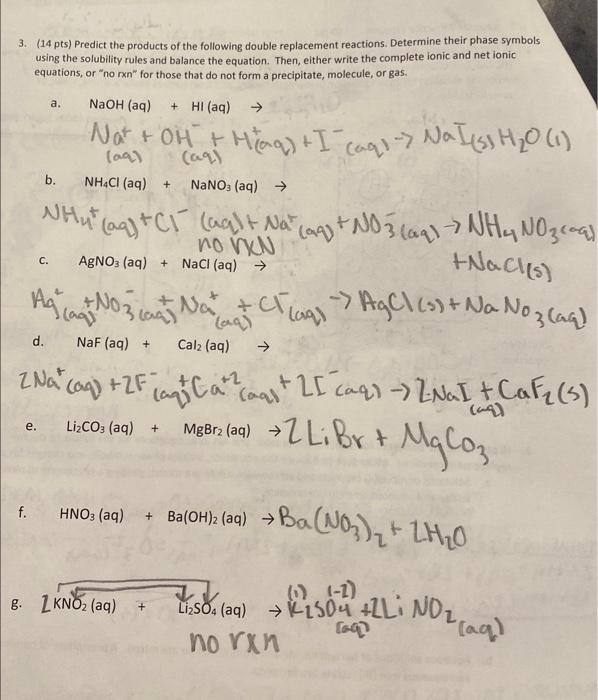 3. (14 pts) Predict the products of the following double replacement reactions. Determine their phase symbols
using the solubility rules and balance the equation. Then, either write the complete ionic and net ionic
equations, or "no rxn" for those that do not form a precipitate, molecule, or gas.
a. NaOH (aq) + HI (aq) →
Na⁺ + OH⁻ + H⁺(aq) + I⁻(aq) → NaI(s) H₂O(l)
(aq) (aq)
b. NH₄Cl (aq) + NaNO₃ (aq) →
NH₄⁺(aq) + Cl⁻(aq) + Na⁺(aq) + NO₃⁻(aq) → NH₄NO₃(aq)
no rxN
+ NaCl(s)
c. AgNO₃ (aq) + NaCl (aq) →
Ag⁺(aq) + NO₃⁻(aq) + Na⁺(aq) + Cl⁻(aq) → AgCl(s) + NaNO₃(aq)
d. NaF (aq) + CaI₂ (aq) →
2Na⁺(aq) + 2F⁻(aq) + Ca⁺²(aq) + 2I⁻(aq) → 2NaI + CaF₂(s)
(aq)
e. Li₂CO₃ (aq) + MgBr₂ (aq) → 2LiBr + MgCO₃
f. HNO₃ (aq) + Ba(OH)₂ (aq) → Ba(NO₃)₂ + 2H₂O
(1) (-2)
g. 2KNO₂ (aq) + Li₂SO₄ (aq) → K₂SO₄ + 2LiNO₂
(aq) (aq)
no rxn